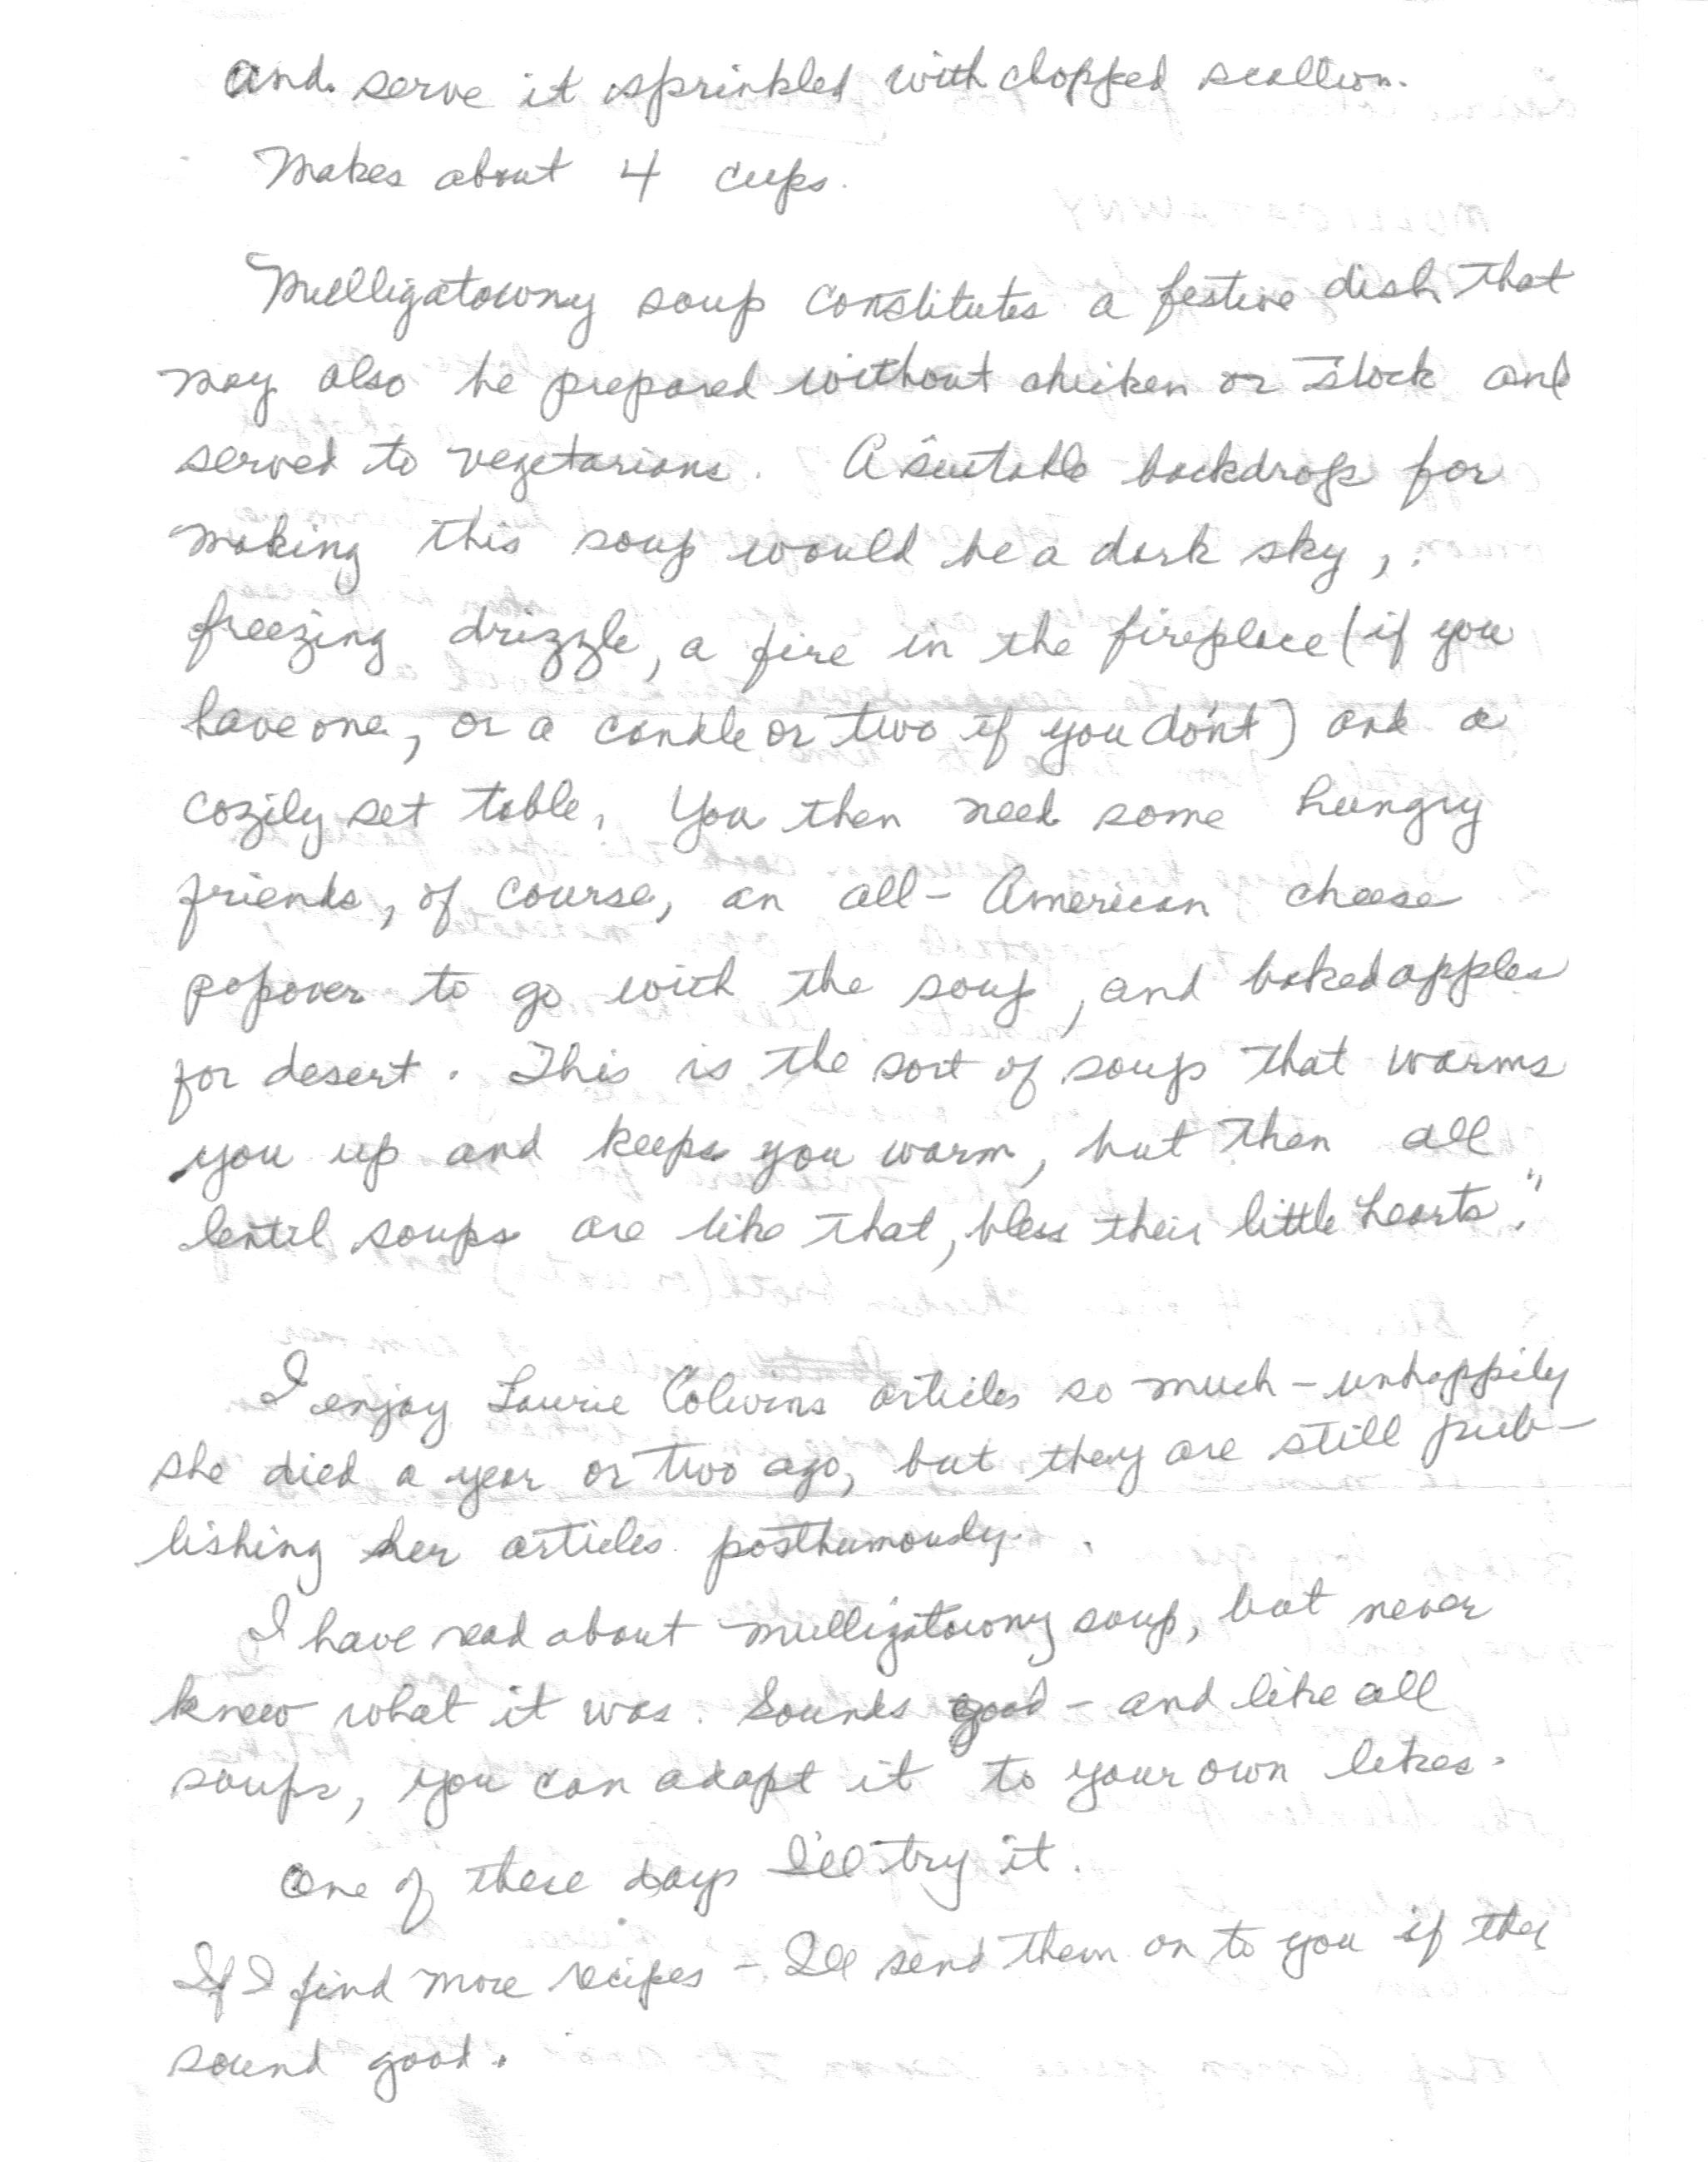 and serve it sprinkled with chopped scallion.
Makes about 4 cups.
Mulligatowny soup constitutes a festive dish that
may also be prepared without chicken or stock and
served to vegetarians. A suitable backdrop for
making this soup would be a dark sky,
freezing drizzle, a fire in the fireplace (if you
have one, or a candle or two if you don't) and a
cozily set table. You then need some hungry
friends, of course, an all-American cheese
popover to go with the soup, and baked apples
for desert. This is the sort of soup that warms
you up and keeps you warm, but then all
lentil soups are like that, bless their little hearts."
I enjoy Laurie Colwins articles so much - unhappily
she died a year or two ago, but they are still pub-
lishing her articles posthumously.
I have read about mulligatowny soup, but never
knew what it was. Sounds good - and like all
soups, you can adapt it to your own likes.
One of these days I'll try it.
If I find more recipes - I'll send them on to you if they
sound good.